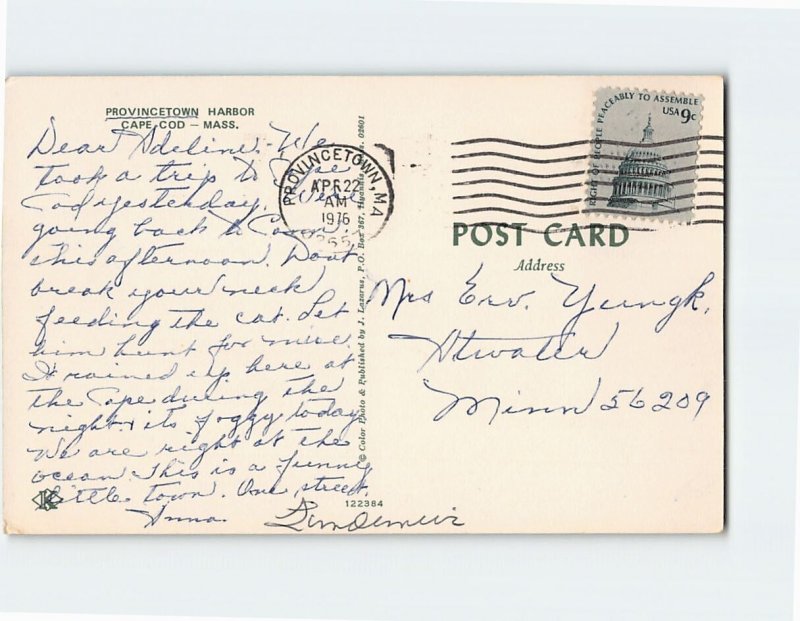 PROVINCETOWN HARBOR
CAPE COD – MASS.
Dear Adeline - We
took a trip to Cape
Cod yesterday. We're
going back to Conn.
this afternoon. Dont
break your neck
feeding the cat. Let
him hunt for mice.
It rained up here at
the Cape during the
night & its foggy today
We are right at the
ocean. This is a funny
little town. One street.
Anna.
K
122384
© Color Photo & Published by J. Lazarus, P.O. Box 367, Hyannis, Mass. 02601
PROVINCETOWN, MA
APR 22
AM
1976
RIGHT OF PEOPLE PEACEABLY TO ASSEMBLE
USA 9c
POST CARD
Address
Mrs Erv. Yungk,
Atwater
Minn 56209